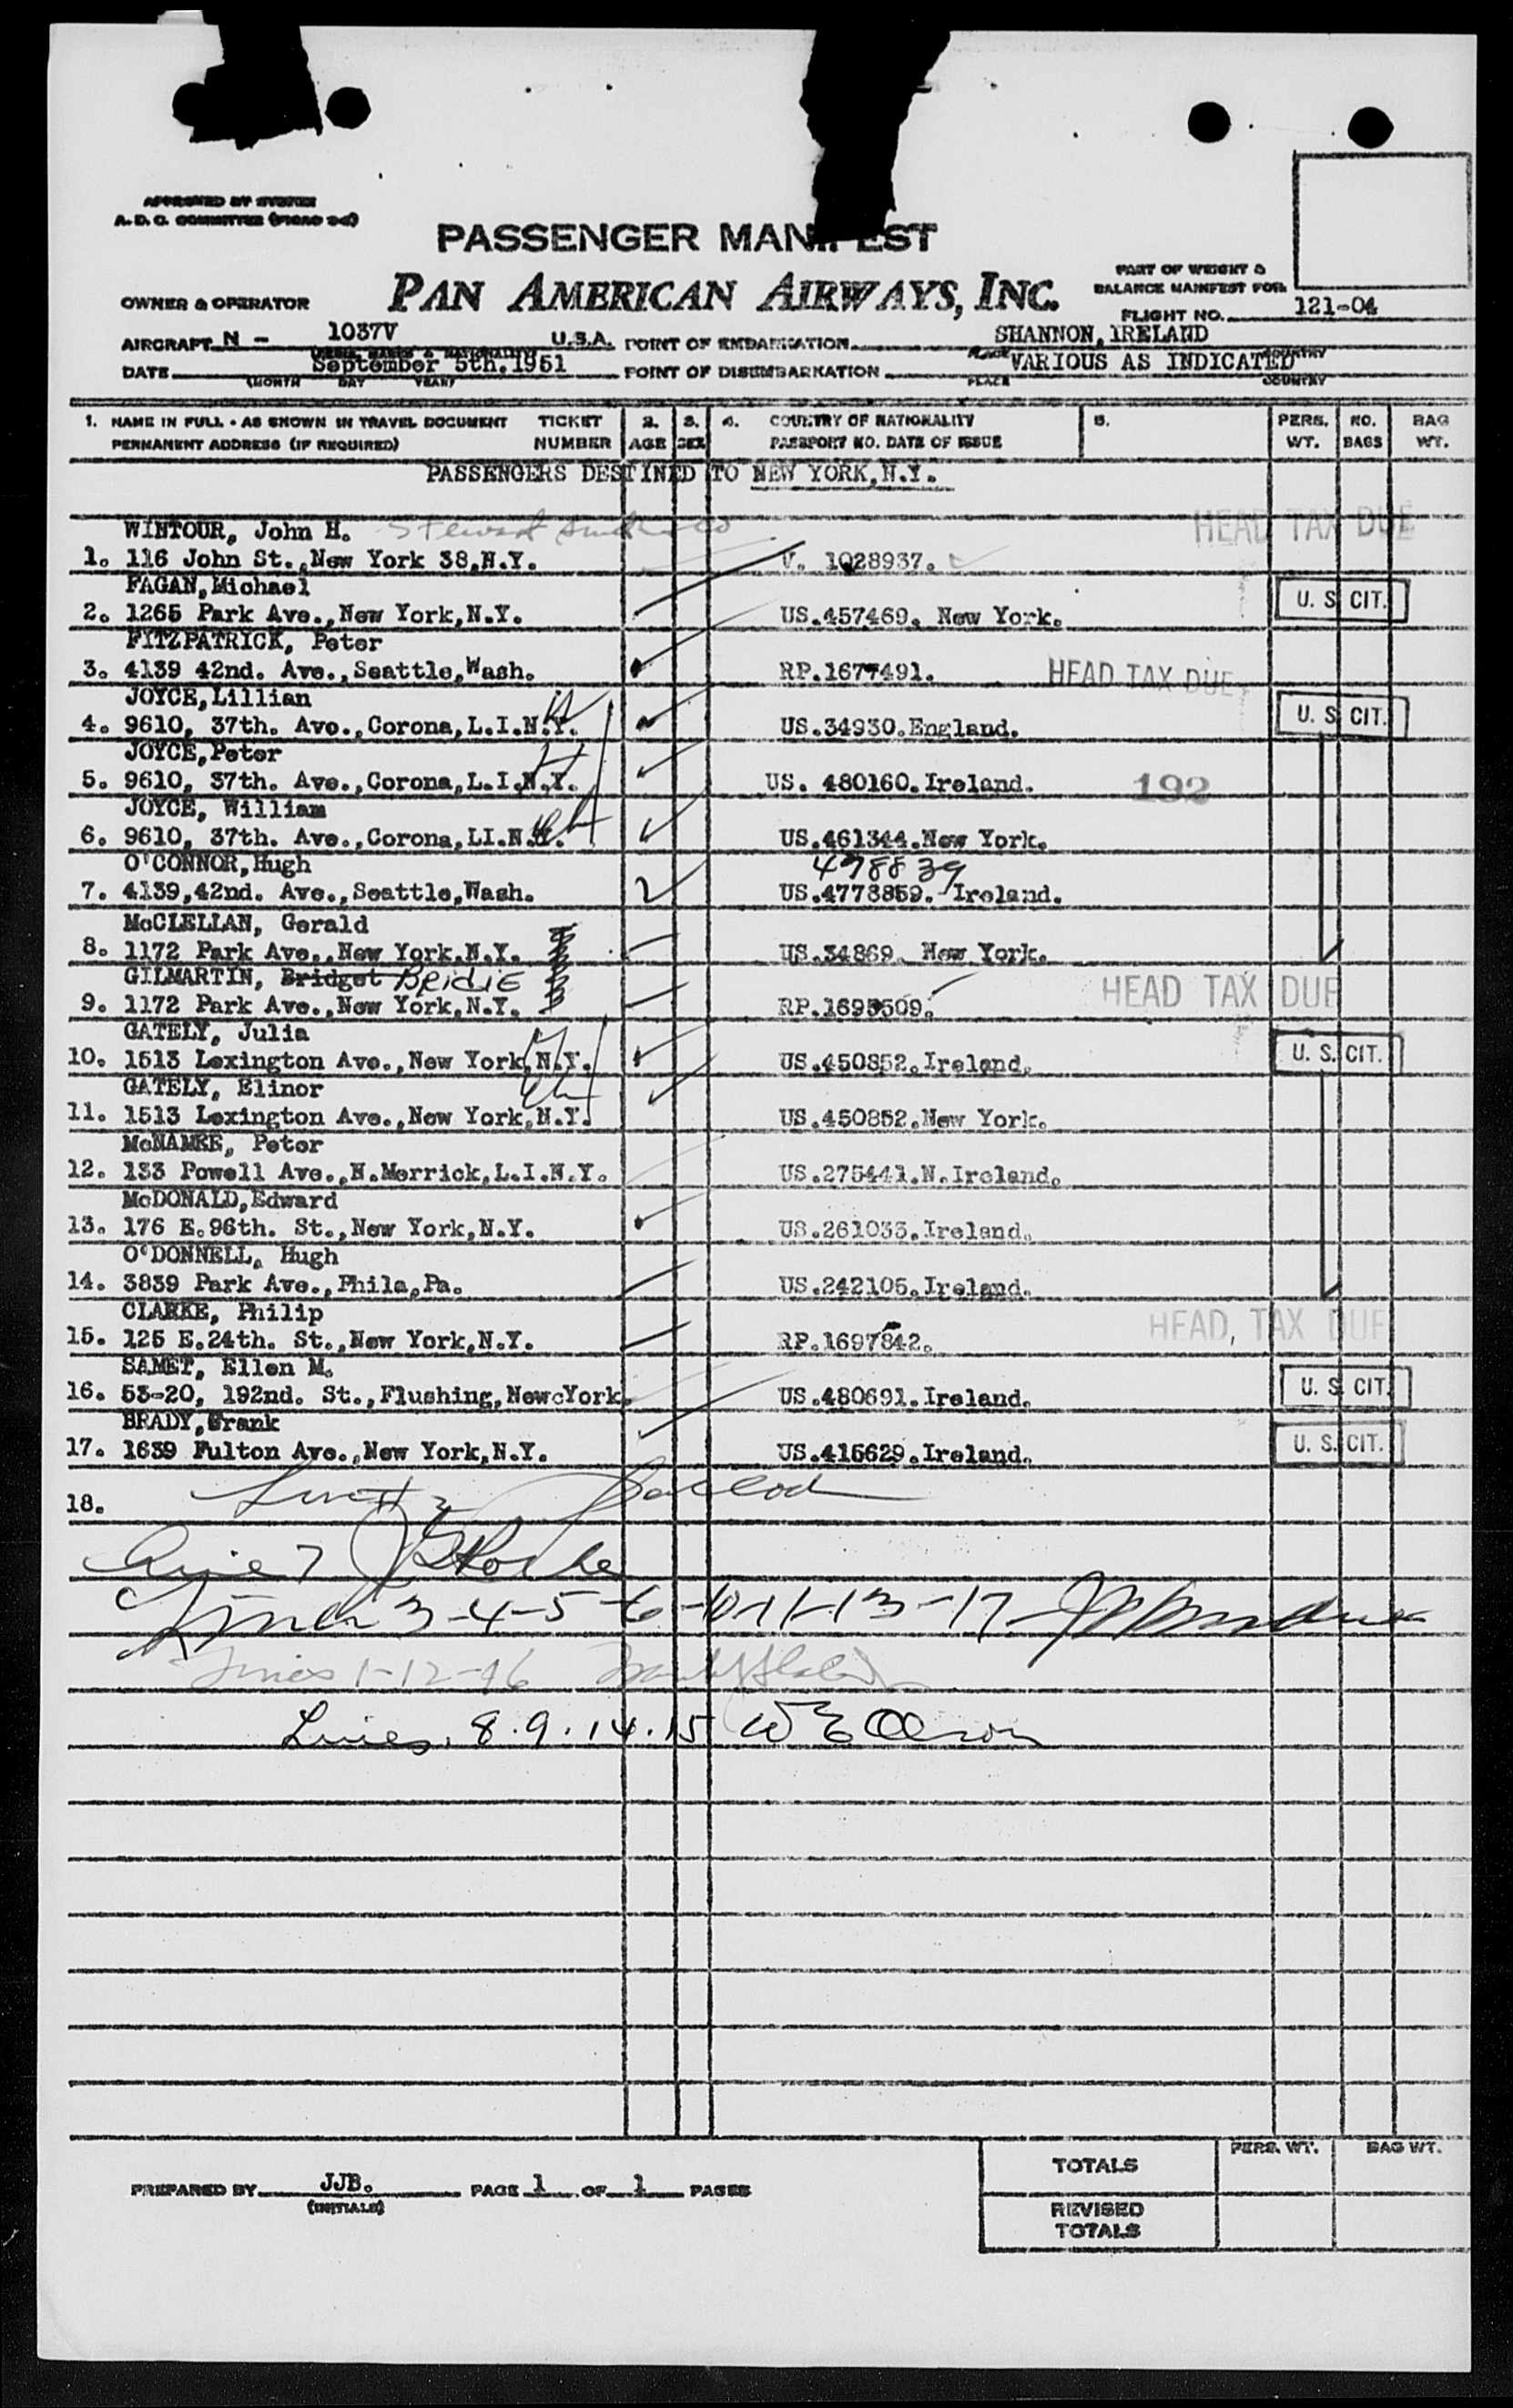 APPROVED BY SYSTEM
A.D.C. COMMITTEE
PASSENGER MANIFEST
PAN AMERICAN AIRWAYS, INC.
PART OF WEIGHT &
BALANCE MANIFEST FOR
OWNER & OPERATOR
FLIGHT NO. 121-04
AIRCRAFT N - 1037V U.S.A. POINT OF EMBARKATION SHANNON, IRELAND
DATE September 5th.1951 POINT OF DISEMBARKATION VARIOUS AS INDICATED
(MONTH DAY YEAR) PLACE COUNTRY
1. NAME IN FULL - AS SHOWN IN TRAVEL DOCUMENT TICKET 2. 3. 4. COUNTRY OF NATIONALITY 5. PERS. NO. BAG
PERMANENT ADDRESS (IF REQUIRED) NUMBER AGE SEX PASSPORT NO. DATE OF ISSUE WT. BAGS WT.
PASSENGERS DESTINED TO NEW YORK,N.Y.
WINTOUR, John H. HEAD TAX DUE
1. 116 John St.,New York 38,N.Y. V. 1028937.
FAGAN,Michael
2. 1265 Park Ave.,New York,N.Y. US.457469. New York. U. S. CIT.
FITZPATRICK, Peter
3. 4139 42nd. Ave.,Seattle,Wash. RP.1677491. HEAD TAX DUE
JOYCE,Lillian
4. 9610, 37th. Ave.,Corona,L.I.N.Y. US.34930.England. U. S. CIT.
JOYCE,Peter
5. 9610, 37th. Ave.,Corona,L.I.N.Y. US. 480160.Ireland. 192
JOYCE, William
6. 9610, 37th. Ave.,Corona,LI.N.Y. US.461344.New York.
O'CONNOR,Hugh 478839
7. 4139,42nd. Ave.,Seattle,Wash. US.4778859. Ireland.
McCLELLAN, Gerald
8. 1172 Park Ave.,New York,N.Y. US.34869. New York.
GILMARTIN, Bridget BRIDIE HEAD TAX DUE
9. 1172 Park Ave.,New York,N.Y. RP.1695509.
GATELY, Julia
10. 1513 Lexington Ave.,New York,N.Y. US.450852.Ireland. U. S. CIT.
GATELY, Elinor
11. 1513 Lexington Ave.,New York,N.Y. US.450852.New York.
McNAMEE, Peter
12. 133 Powell Ave.,N.Merrick,L.I.N.Y. US.275441.N.Ireland.
McDONALD,Edward
13. 176 E.96th. St.,New York,N.Y. US.261033.Ireland.
O'DONNELL, Hugh
14. 3839 Park Ave.,Phila,Pa. US.242105.Ireland.
CLARKE, Philip HEAD TAX DUE
15. 125 E.24th. St.,New York,N.Y. RP.1697842.
SAMET, Ellen M.
16. 53-20, 192nd. St.,Flushing,NewcYork. US.480691.Ireland. U. S. CIT.
BRADY,Frank
17. 1639 Fulton Ave.,New York,N.Y. US.415629.Ireland. U. S. CIT.
18.
3-4-5-6-10-11-13-17
Lines 1-12-16
Lines. 8.9.14.15 W E Olson
TOTALS PERS. WT. BAG WT.
PREPARED BY JJB. PAGE 1 OF 1 PAGES
(INITIALS)
REVISED
TOTALS